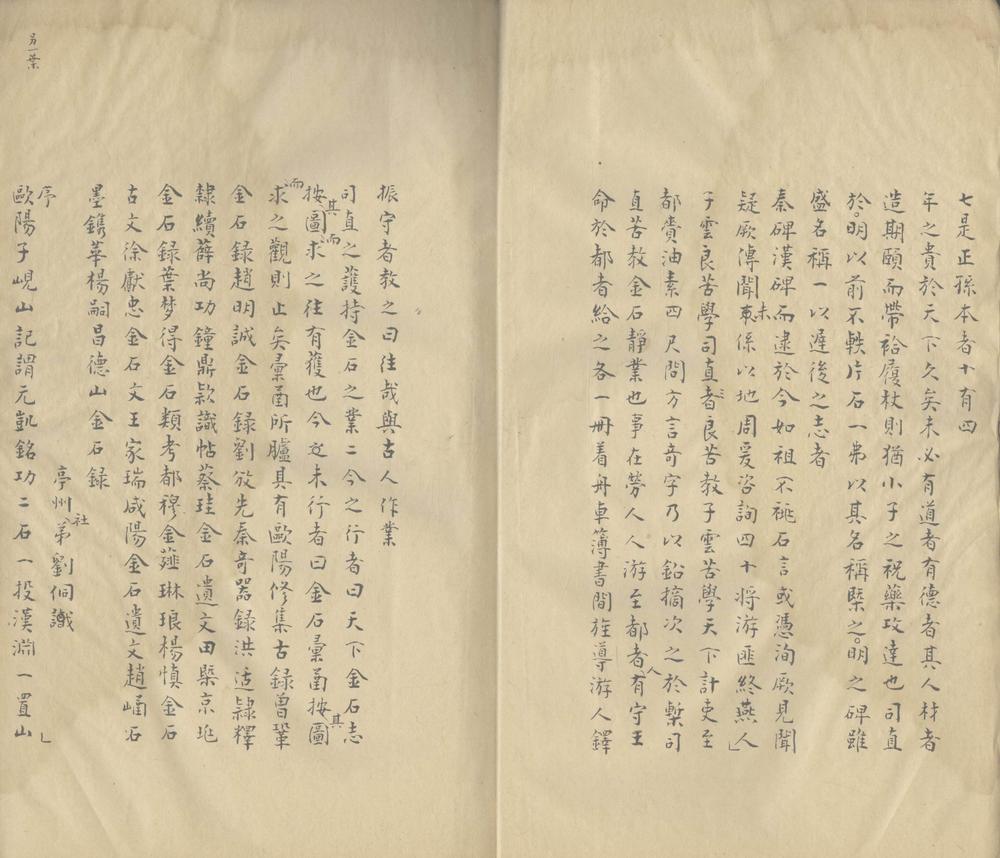 七是正孫本者十有四
年之貴於天下久矣未必有道者有德者其人材者
造期頤而帶袷履杖則猶小子之祝藥玫達也司直
於明以前不軼片石一弗以其名稱槩之明之碑雖
盛名稱一以遲後之志者
秦碑漢碑而逮於今如祖不祧石言或憑洵厥見聞
疑厥傳聞車未係以地周爰咨詢四十將游匪終燕人
子雲良苦學司直者良苦教子雲苦學天下計吏至
都賷油素四尺問方言奇字乃以鉛摘次之於槧司
直苦教金石靜業也事在勞人人游至都者人有守王
命於都者給之各一冊着舟車簿書間旌導游人鐸
振守者教之曰往哉與古人作業
司直之護持金石之業二今之行者曰天下金石志
按其圖而求之往有獲也今之未行者曰金石彙畣按其圖
而求之觀則止矣彙畣所臚具有歐陽修集古錄曾鞏
金石錄趙明誠金石錄劉攽先秦奇器錄洪适隷釋
隸續薛尚功鐘鼎款識帖蔡珪金石遺文田槩京兆
金石錄葉梦得金石類考都穆金薤琳琅楊慎金石
古文徐獻忠金石文王家瑞咸陽金石遺文趙崡石
墨鐫華楊嗣昌德山金石録
亭州社弟劉侗識
序
歐陽子峴山記謂元凱銘功二石一投漢淵一置山
另一葉